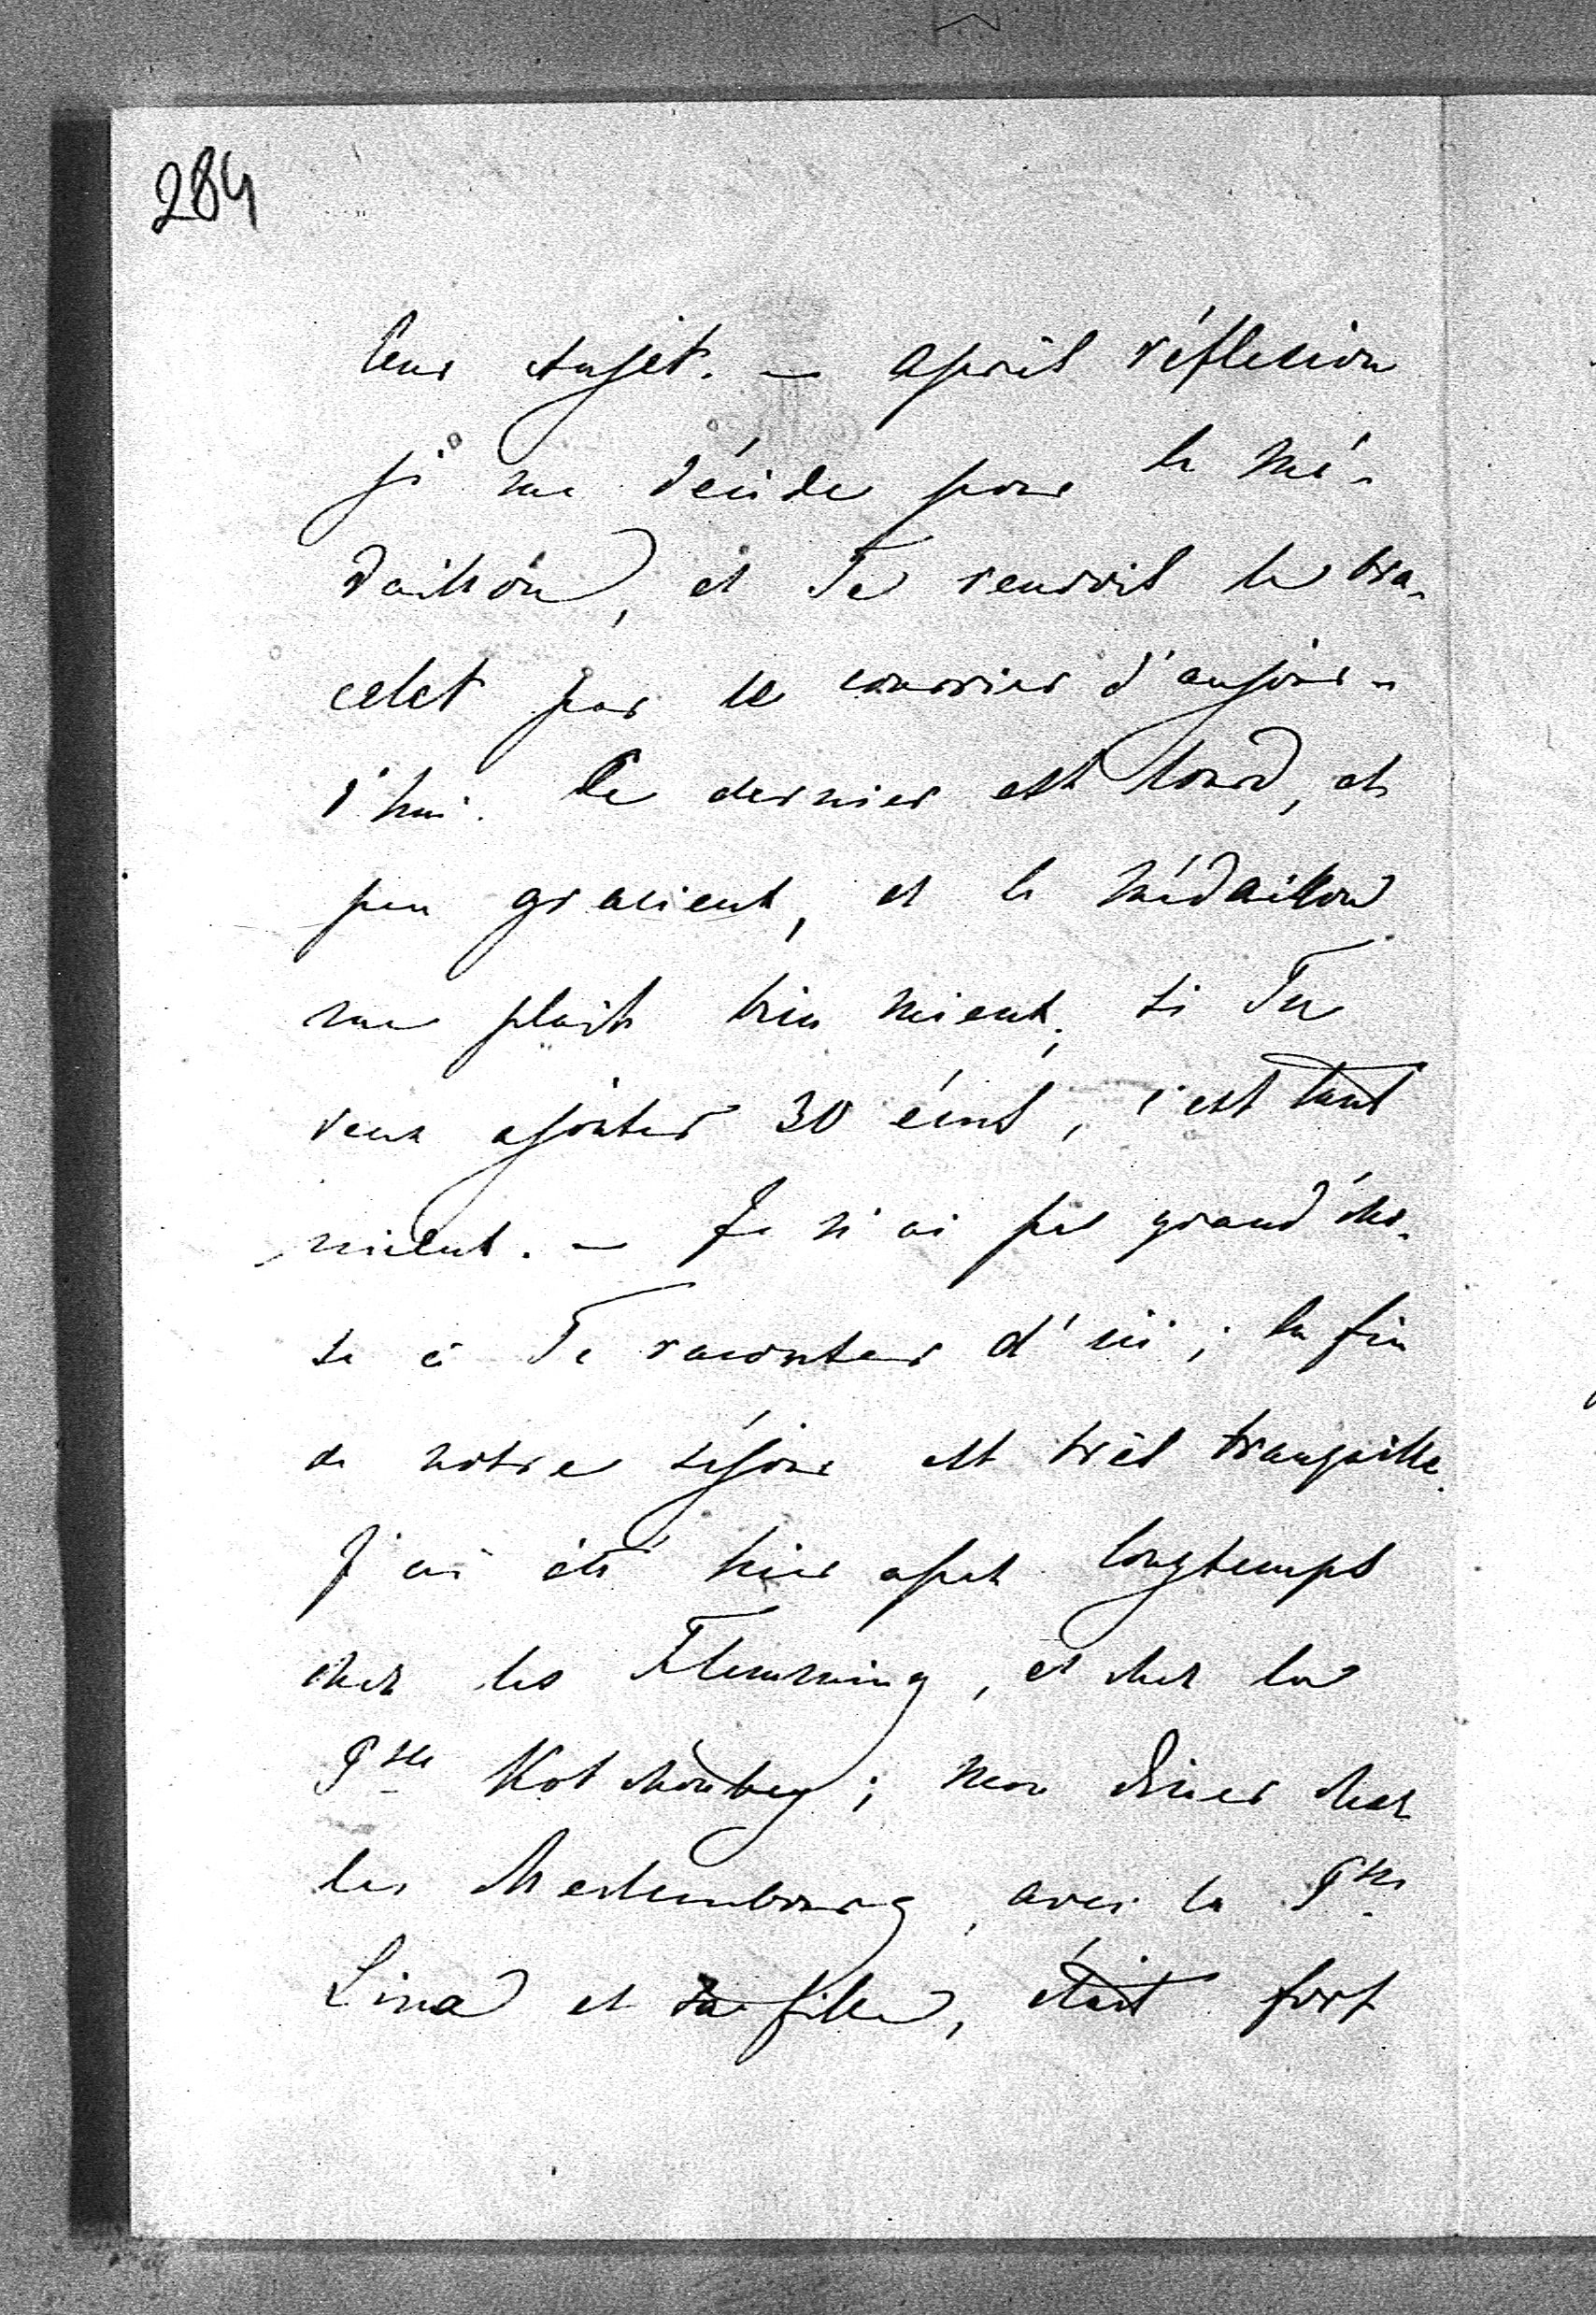 284
leur sujet. — après réflexion
je me décide pour le mé-
daillon, et Te renvois le bra-
celet par le courrier d'aujour-
d'hui. Ce dernier est lourd, et
peu gracieux, et le médaillon
me plait bien mieux; si Tu
veux ajouter 30 écus, c'est tant
mieux. — Je n'ai pas grand'cho-
se à Te raconter d'ici; la fin
de notre séjour est très tranquille.
J'ai été hier assez longtemps
chez les Flemming, et chez la
Psse Kotchoubey; mon diner chez
les Meclembourg, avec la Psse
Lina et sa fille, était fort